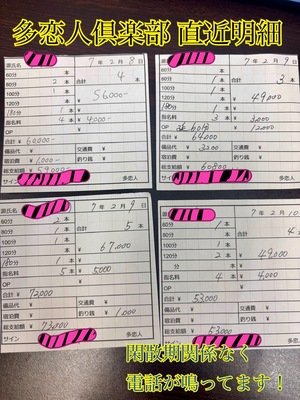 多恋人倶楽部 直近明細
源氏名
7年2月8日
60分 本 合計
80分 1本 4本
100分 2本
120分 1本 56,000-
180分 1本
指名料 4本 4,000-
OP
合計 ¥ 60,000-
備品代 ¥ 交通費 ¥
宿泊費 ¥ 1,000- 釣り銭 ¥
総支給額 ¥ 59,000-
サイン 多恋人
源氏名
7年2月9日
60分 本 合計
80分 本 3本
100分 1本
120分 1本 49,000
1本
指名料 3本 3,000
OP 延60分 12,000
合計 ¥ 64,000
備品代 ¥ 3200 交通費 ¥
宿泊費 ¥ 釣り銭 ¥
総支給額 ¥ 60800
サイン 多恋人
源氏名
7年2月9日
60分 2本 合計
80分 1本 5本
100分 本
120分 1本 67,000
180分 1本
指名料 5本 5000
OP
合計 ¥ 72,000
備品代 ¥ 交通費 ¥
宿泊費 ¥ 釣り銭 ¥ 1,000
総支給額 ¥ 73,000
サイン 多恋人
源氏名
7年2月10
60分 1本 合計
80分 本
100分 1本
120分 2本 49,000
分 本
指名料 4本 4,000
OP
合計 ¥ 53,000
備品代 ¥ 交通費 ¥
宿泊費 ¥ 釣り銭 ¥
総支給額 ¥ 53,000
サイン 多恋人
閑散期関係なく
電話が鳴ってます!